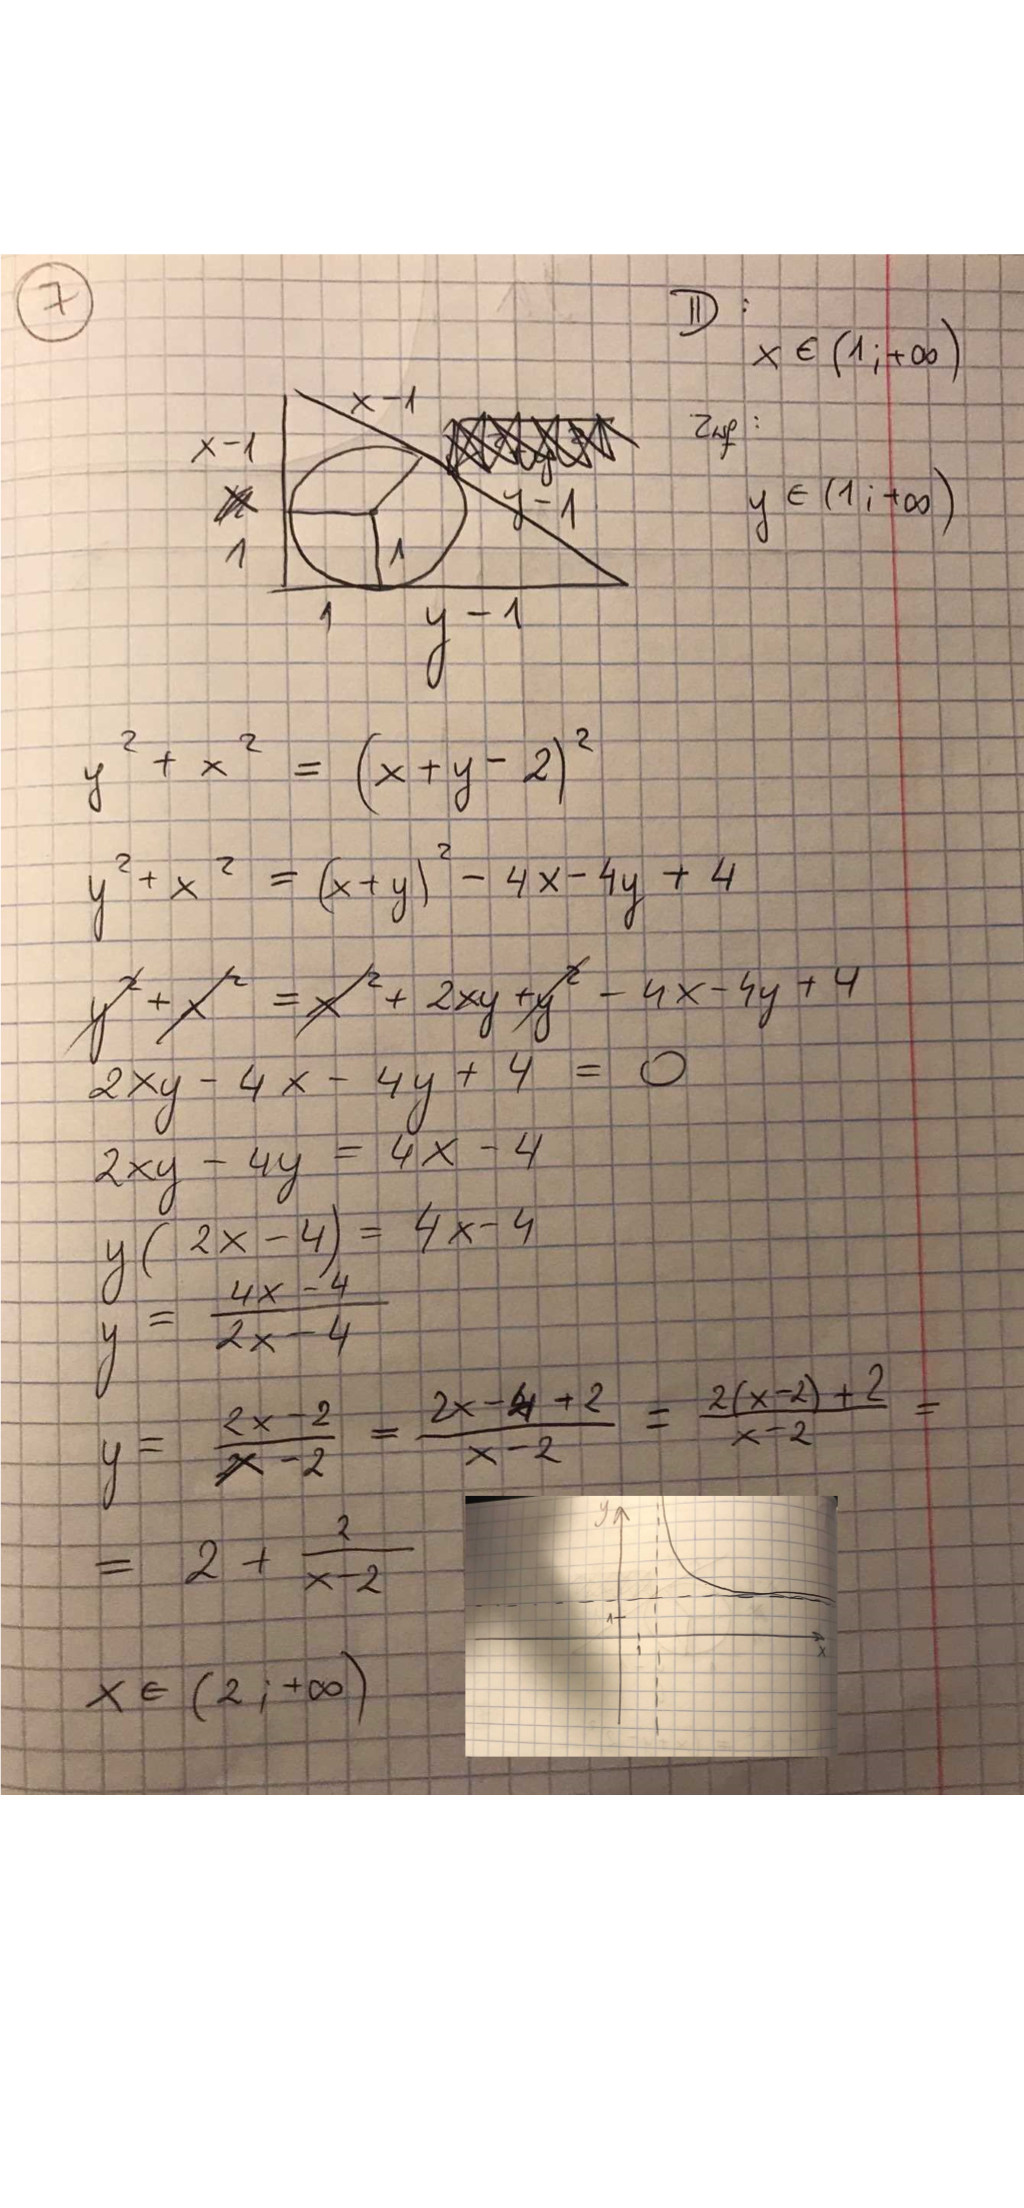 7
D :
x ∈ (1; +∞)
Zwf :
y ∈ (1; +∞)
x-1
x-1
y-1
1
1
1
y-1
y² + x² = (x+y-2)²
y² + x² = (x+y)² - 4x - 4y + 4
y² + x² = x² + 2xy + y² - 4x - 4y + 4
2xy - 4x - 4y + 4 = 0
2xy - 4y = 4x - 4
y(2x-4) = 4x-4
y = (4x-4)/(2x-4)
y = (2x-2)/(x-2) = (2x-4+2)/(x-2) = (2(x-2)+2)/(x-2) =
= 2 + 2/(x-2)
y
1
1
x
x ∈ (2; +∞)